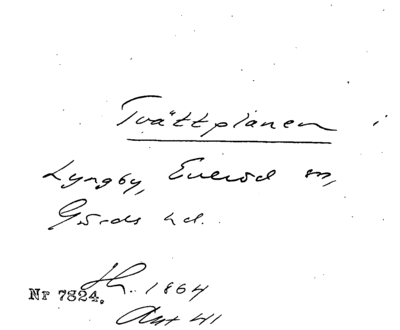 Tvättplanen i
Lyngby, Everöd sn,
Gärds hd.
1864
Nr 7824.
41